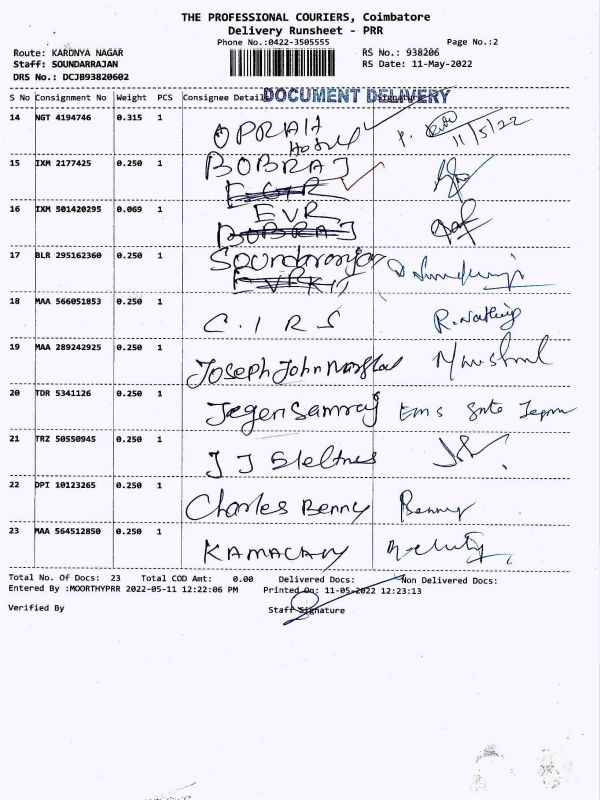 THE PROFESSIONAL COURIERS, Coimbatore
Delivery Runsheet - PRR
Phone No.:0422-3505555 Page No.:2
Route: KARUNYA NAGAR RS No.: 938206
Staff: SOUNDARRAJAN RS Date: 11-May-2022
DRS No.: DCJB93820602
S No Consignment No Weight PCS Consignee Details DOCUMENT DELIVERY
14 NGT 4194746 0.315 1 OPRAH
11/5/22
15 IXM 2177425 0.250 1 BOBRAJ
16 IXM 501420295 0.069 1 EVR
BOBRAJ
17 BLR 295162360 0.250 1 Soundararajan
18 MAA 566051853 0.250 1 C.I R S R.
19 MAA 289242925 0.250 1 Joseph John
20 TDR 5341126 0.250 1 Jegen Samraj
21 TRZ 50550945 0.250 1 J J
22 DPI 10123265 0.250 1 Charles Benny Benny
23 MAA 564512850 0.250 1
Total No. Of Docs: 23 Total COD Amt: 0.00 Delivered Docs: Non Delivered Docs:
Entered By :MOORTHYPRR 2022-05-11 12:22:06 PM Printed On: 11-05-2022 12:23:13
Verified By Staff Signature